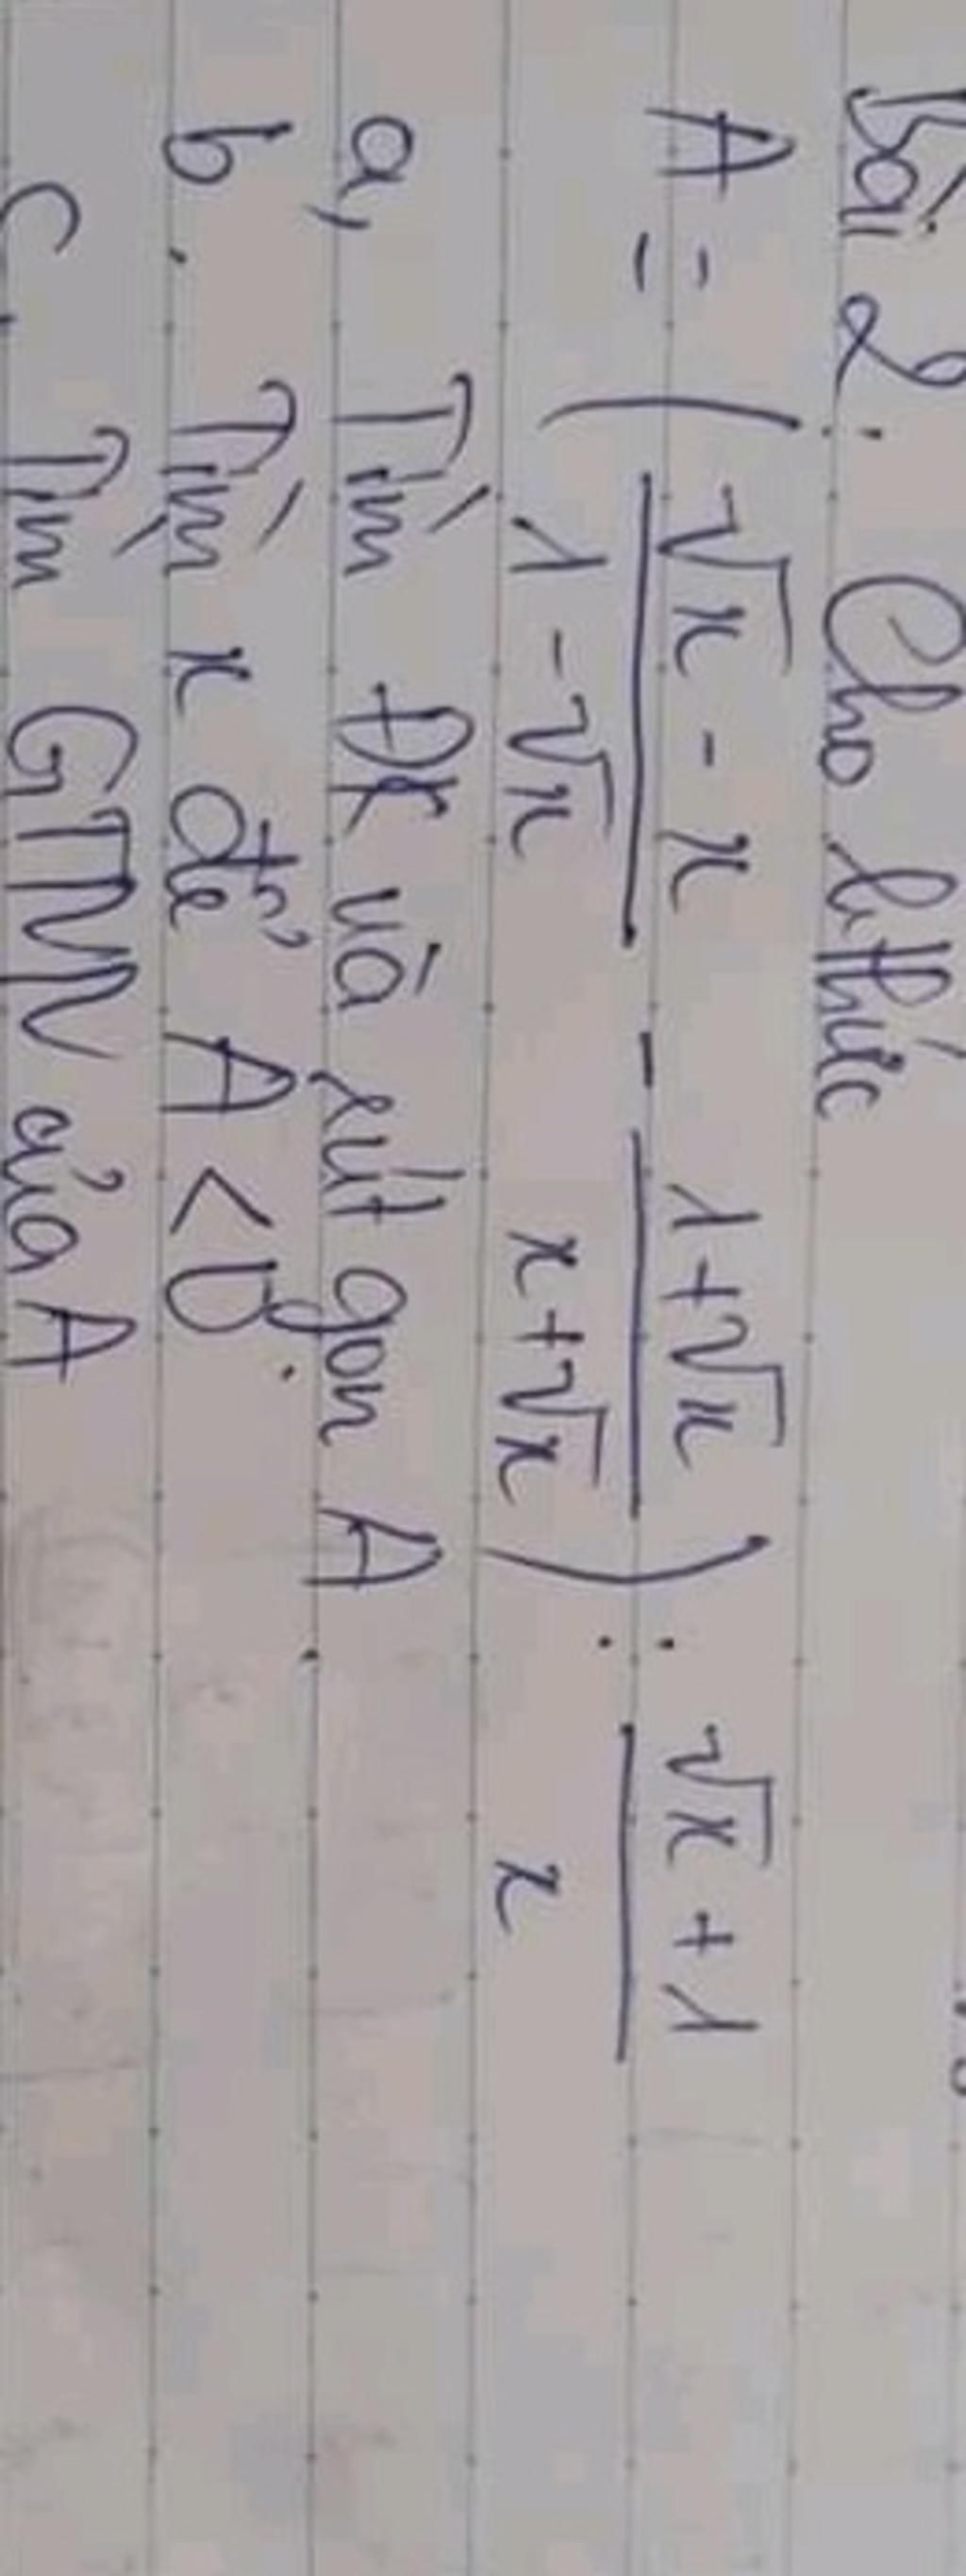 Bài 2: Cho b.thức
A = ( (√x - x)/(1 - √x) - (1+√x)/(x+√x) ) : (√x + 1)/x
a, Tìm ĐK và rút gọn A.
b. Tìm x để A < 0.
c, Tìm GTNN của A